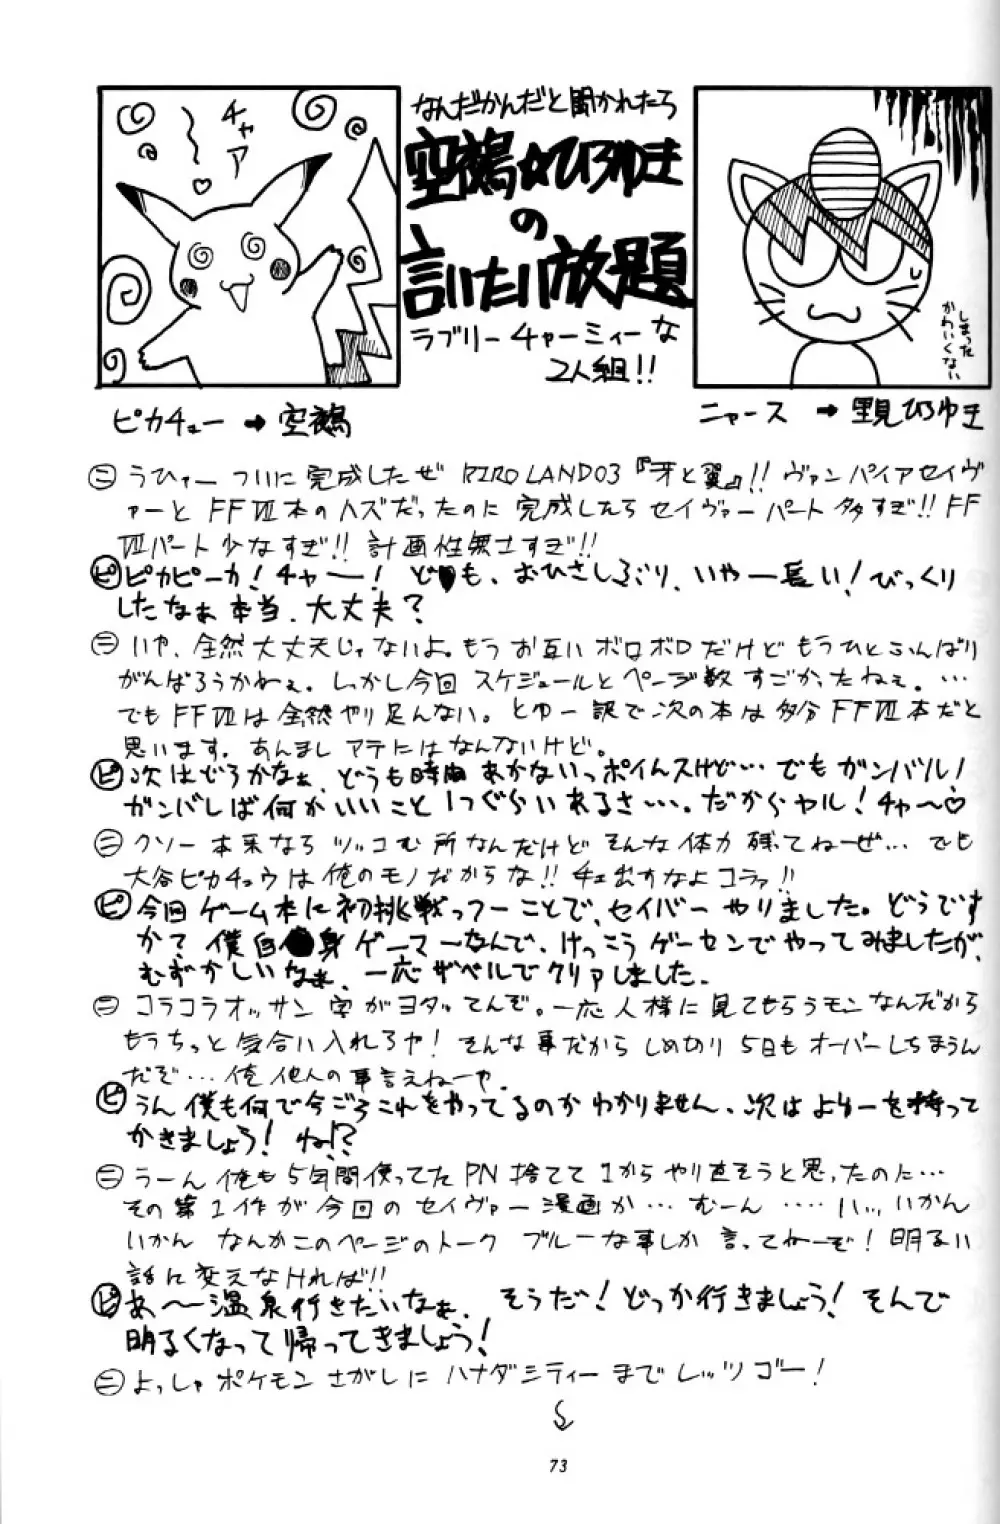 チャア
♡
なんだかんだと聞かれたら
空鵺☆ひろゆき
の
言いたい放題
ラブリーチャーミィーな
2人組!!
しまった
かわいくない
ピカチュー→空鵺
ニャース → 里見ひろゆき
ニ うひゃー ついに完成したぜ RIROLAND03『牙と翼』!! ヴァンパイアセイヴ
ァーと FFⅦ本のハズだったのに完成したらセイヴァーパート多すぎ!! FF
Ⅶパート少なすぎ!! 計画性無さすぎ!!
ピ ピカピーカ! チャー! ども、おひさしぶり、いやー長い! びっくり
したなぁ本当、大丈夫?
ニ いや、全然大丈夫じゃないよ。もうお互いボロボロだけどもうひとふんばり
がんばろうかねぇ。しっかし今回スケジュールとページ数すごかったねぇ。…
でもFFⅦは全然やり足んない。とゆー訳で次の本は多分FFⅦ本だと
思います。あんましアテにはなんないけど。
ピ 次はどうかなぁ、どうも時間あかないっポイんスけど… でもガンバル!
ガンバレば何かいいこと1つぐらいあるさ…。だからヤル! チャ〜♡
ニ クソー本来ならツッコむ所なんだけどそんな体力残ってねーぜ… でも
大谷ピカチュウは俺のモノだからな!! チェ出すなよコラァ!!
ピ 今回ゲーム本に初挑戦っつーことで、セイバーやりました。どうです
か? 僕自身ゲーマーなんで、けっこうゲーセンでやってみましたが、
むずかしいなぁ、一応ザベルでクリアしました。
ニ コラコラオッサン字がヨタってんぞ。一応人様に見てもらうモンなんだから
もうちっと気合い入れろや! そんな事だからしめ切り5日もオーバーしちまうん
だぞ… 俺他人の事言えねーや。
ピ うん僕も何で今ごろこれをやってるのかわかりません、次はよゆーを持って
かきましょう! ね!?
ニ うーん俺も5年間使ってたPN捨てて1からやり直そうと思ったのに…
その第1作が今回のセイヴァー漫画か… むーん …. ハッ、いかん
いかん なんかこのページのトーク ブルーな事しか言ってねーぞ! 明るい
話に変えなければ!!
ピ あ〜温泉行きたいなぁ、 そうだ! どっか行きましょう! そんで
明るくなって帰ってきましょう!
ニ よっしゃ ポケモンさがしに ハナダシティーまで レッツゴー!
73